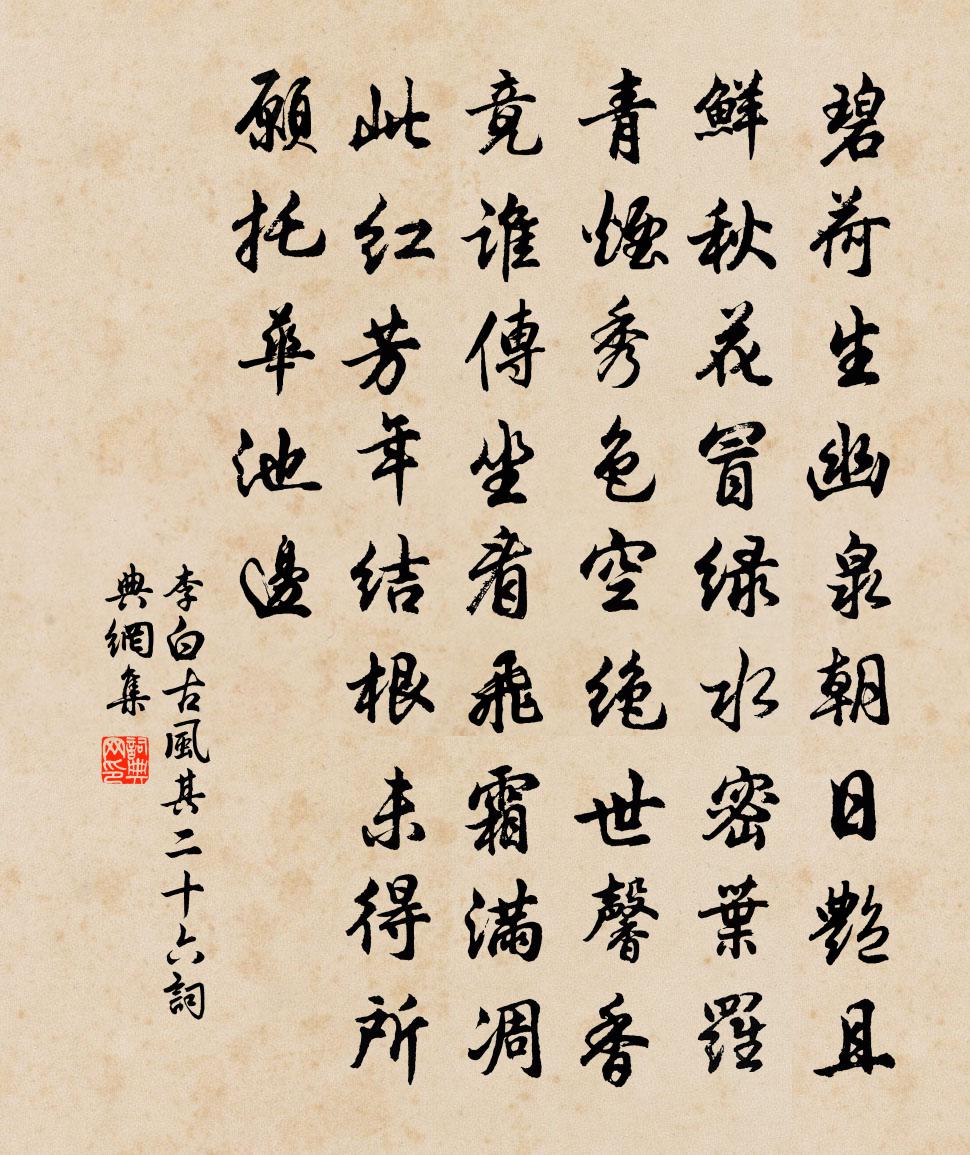 碧荷生幽泉朝日艷且
鮮秋花冒绿水密葉羅
青煙秀色空绝世馨香
竟谁傳坐看飛霜滿凋
此红芳年结根未得所
願托華池邊
李白古風其二十六詞
典網集
詞典网印